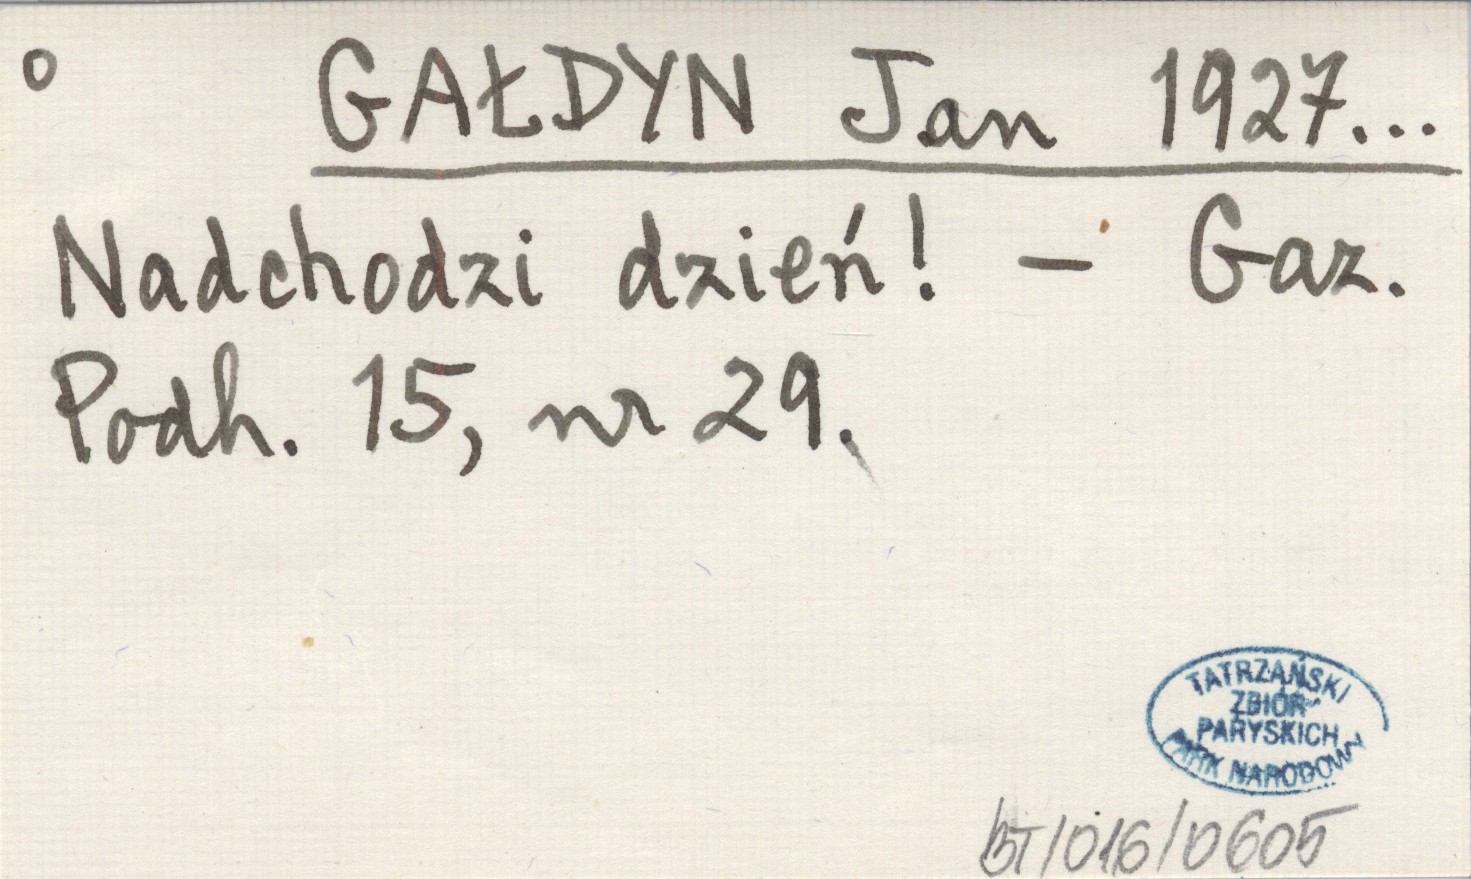 o GAŁDYN Jan 1927...
Nadchodzi dzień! – Gaz.
Podh. 15, nr 29.
TATRZAŃSKI
ZBIÓR
PARYSKICH
PARK NARODOWY
BT/016/0605